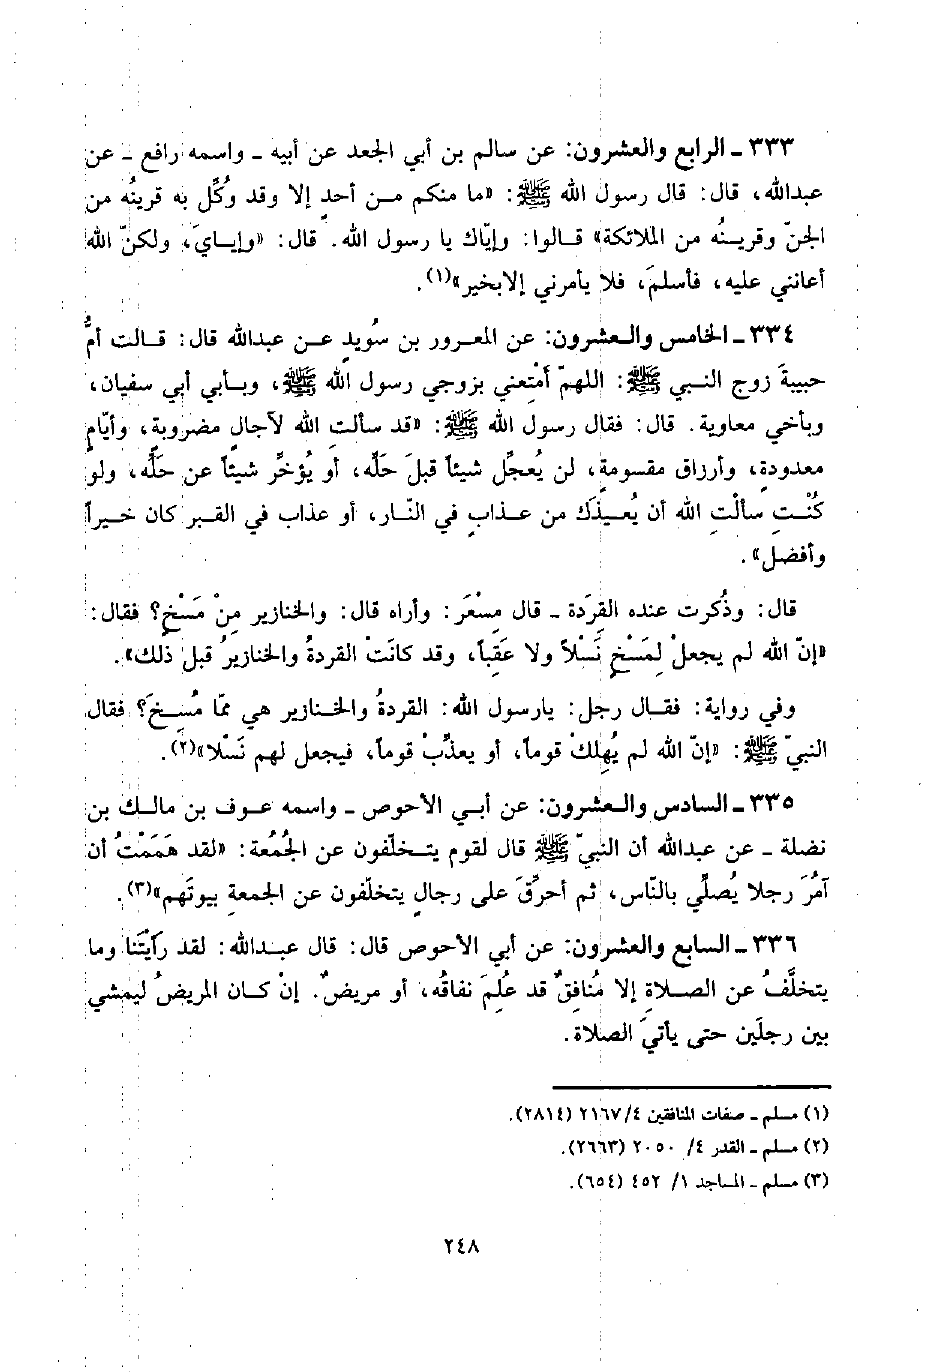 ٣٣٣ ـ الرابع والعشرون: عن سالم بن أبي الجعد عن أبيه ـ واسمه رافع ـ عن
عبدالله، قال: قال رسول الله ﷺ: «ما منكم من أحدٍ إلا وقد وُكِّل به قرينُه من
الجنّ وقرينُه من الملائكة» قالوا: وإيّاك يا رسول الله. قال: «وإيايَ، ولكنّ الله
أعانني عليه، فأسلمَ، فلا يأمرني إلا بخير»(١).
٣٣٤ ـ الخامس والعشرون: عن المعرور بن سُويدٍ عن عبدالله قال: قالت أمُّ
حبيبةَ زوج النبي ﷺ: اللهمّ أمْتِعني بزوجي رسول الله ﷺ، وبأبي أبي سفيان،
وبأخي معاوية. قال: فقال رسول الله ﷺ: «قد سألتِ الله لآجالٍ مضروبةٍ، وأيّامٍ
معدودةٍ، وأرزاق مقسومةٍ، لن يُعجِّل شيئاً قبلَ حَلِّه، أو يُؤخِّر شيئاً عن حَلِّه، ولو
كُنْتِ سألْتِ الله أن يُعيذَكِ من عذابٍ في النّار، أو عذاب في القبر كان خيراً
وأفضل».
قال: وذُكرت عنده القِرَدة ـ قال مِسْعَر: وأراه قال: والخنازير مِنْ مَسْخٍ؟ فقال:
«إنّ الله لم يجعلْ لِمَسْخٍ نَسْلاً ولا عَقِباً، وقد كانَتْ القردةُ والخنازيرُ قبل ذلك».
وفي رواية: فقال رجل: يارسول الله: القردةُ والخنازير هي ممّا مُسِخَ؟ فقال
النبيّ ﷺ: «إنّ الله لم يُهلِكْ قوماً، أو يعذّبْ قوماً، فيجعل لهم نَسْلا»(٢).
٣٣٥ ـ السادس والعشرون: عن أبي الأحوص ـ واسمه عوف بن مالك بن
نضلة ـ عن عبدالله أن النبيّ ﷺ قال لقوم يتخلّفون عن الجُمُعة: «لقد هَمَمْتُ أن
آمُرَ رجلا يُصلِّي بالنّاس، ثم أحرِّقَ على رجالٍ يتخلّفون عن الجمعةِ بيوتَهم»(٣).
٣٣٦ ـ السابع والعشرون: عن أبي الأحوص قال: قال عبدالله: لقد رأيتُنا وما
يتخلَّفُ عن الصلاةِ إلا مُنافِقٌ قد عُلِمَ نفاقُه، أو مريضٌ. إنْ كان المريضُ ليمشي
بين رجلَين حتى يأتيَ الصلاة.
(١) مسلم ـ صفات المنافقين ٤/ ٢١٦٧ (٢٨١٤).
(٢) مسلم ـ القدر ٤/ ٢٠٥٠ (٢٦٦٣).
(٣) مسلم ـ المساجد ١/ ٤٥٢ (٦٥٤).
٢٤٨